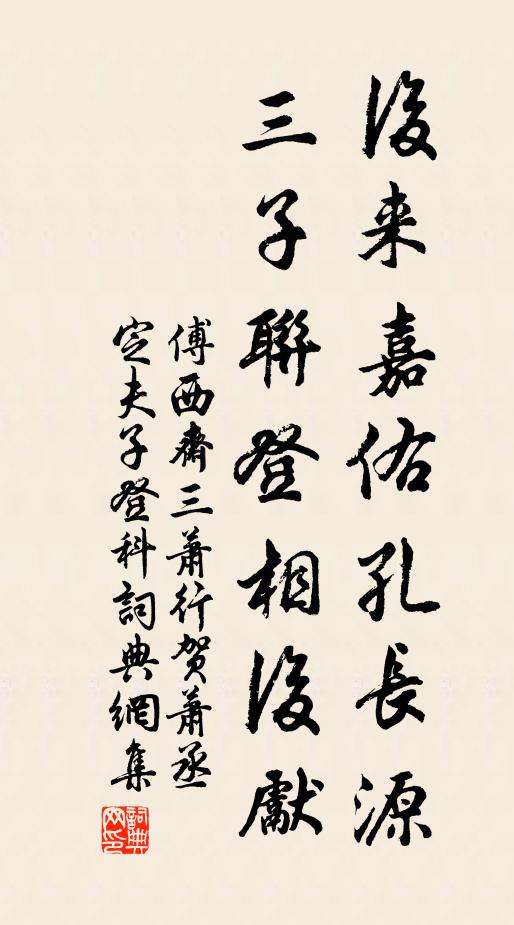 後来嘉佑孔長源
三子聯登相後獻
傅西齋三蕭行贺蕭丞
定夫子登科詞典網集
詞典
网印